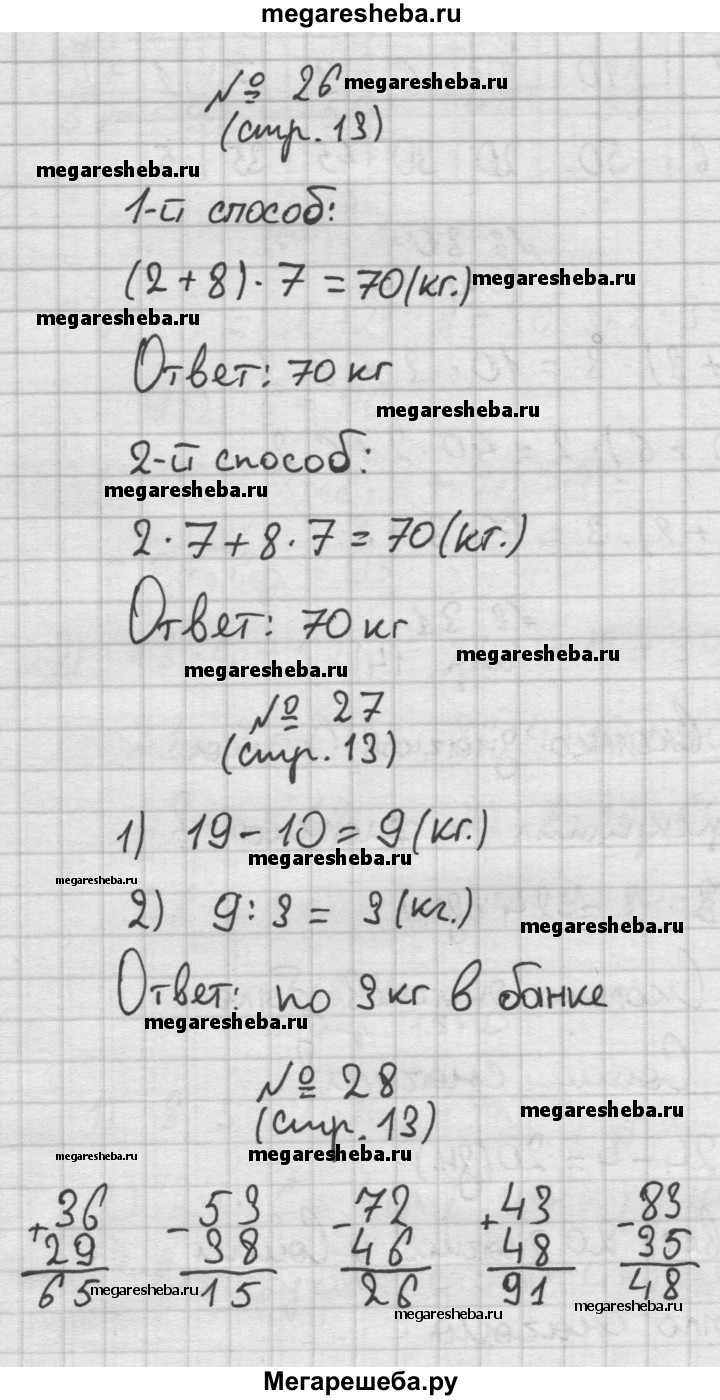 megaresheba.ru
№ 26 megaresheba.ru
(стр. 13)
megaresheba.ru
1-й способ:
(2 + 8) · 7 = 70 (кг.) megaresheba.ru
megaresheba.ru
Ответ: 70 кг
megaresheba.ru
2-й способ:
megaresheba.ru
2 · 7 + 8 · 7 = 70 (кг.)
Ответ: 70 кг
megaresheba.ru
megaresheba.ru
№ 27
(стр. 13)
1) 19 - 10 = 9 (кг.)
megaresheba.ru
megaresheba.ru
2) 9 : 3 = 3 (кг.)
megaresheba.ru
Ответ: по 3 кг в банке
megaresheba.ru
№ 28
megaresheba.ru
(стр. 13)
megaresheba.ru
megaresheba.ru
36 53 72 43 83
+ - - + -
29 38 46 48 35
65 15 26 91 48
megaresheba.ru
megaresheba.ru
megaresheba.ru
megaresheba.ru
Мегарешеба.ру